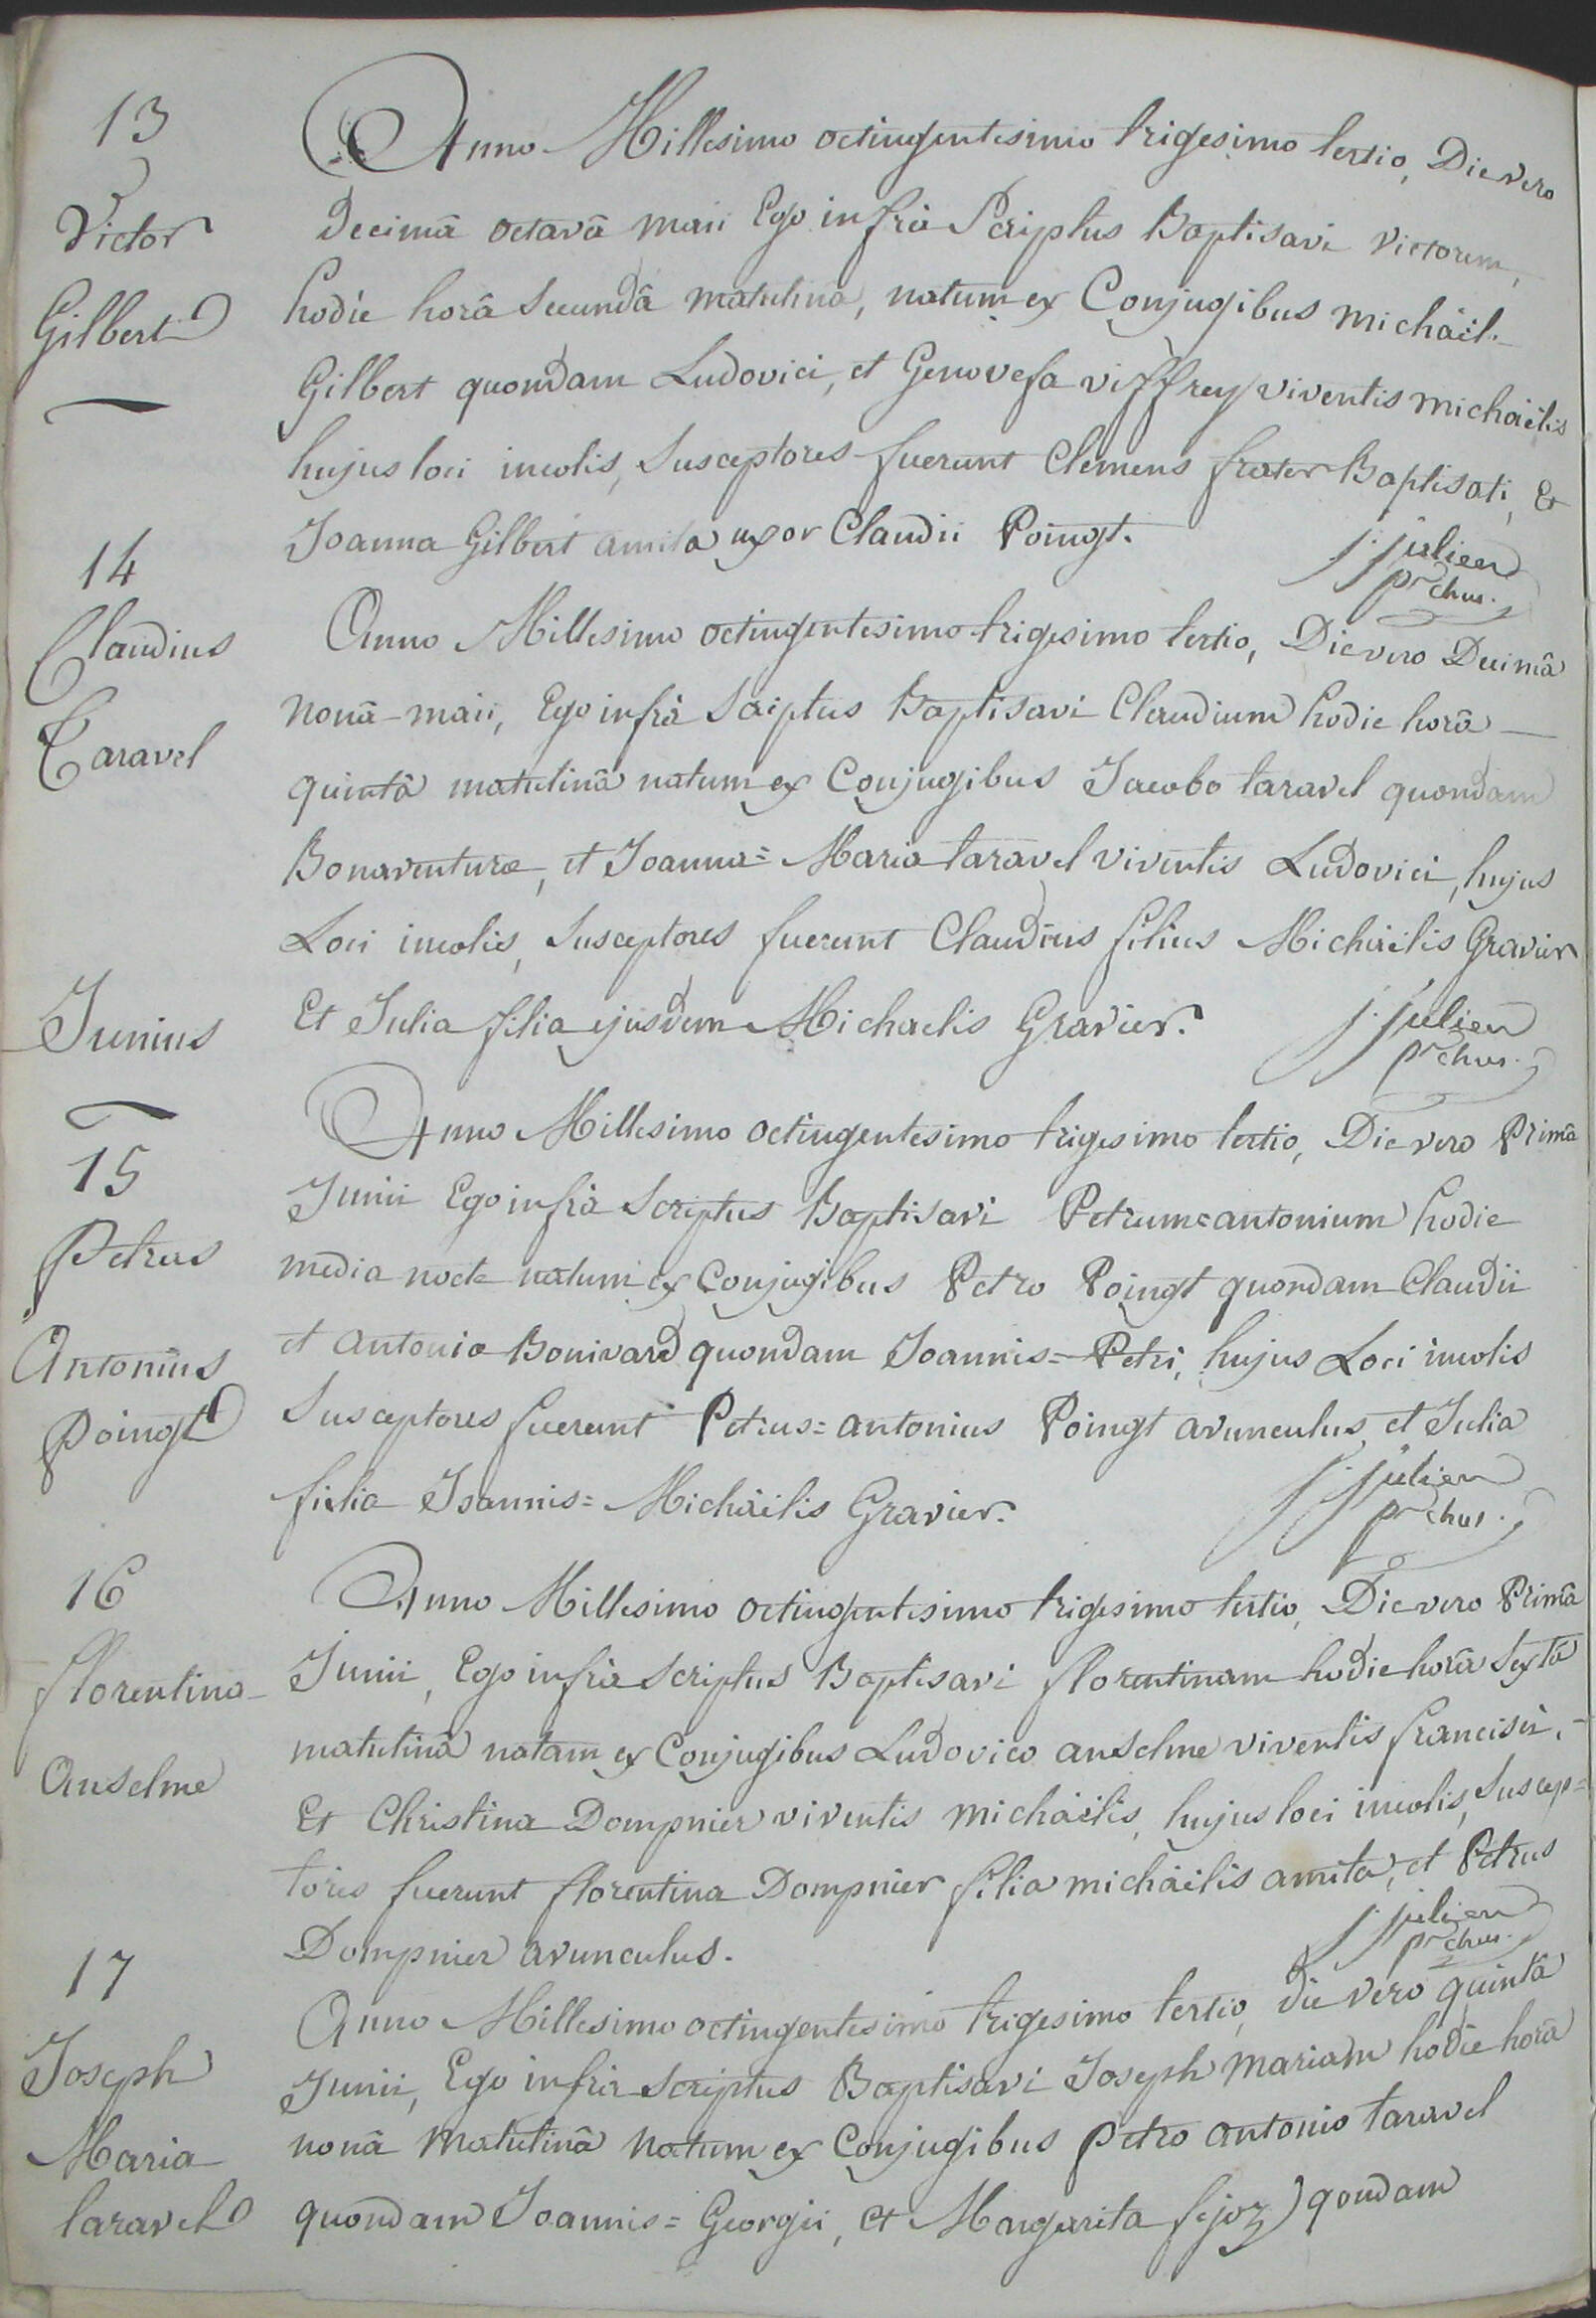 13
Victor
Gilbert
Anno Millesimo octingentesimo trigesimo tertio, Die vero
Decimâ octavâ maii Ego infrà Scriptus Baptisavi victorem,
hodie horâ Secundâ matutina, natum ex Conjugibus michäel
Gilbert quondam Ludovici, et Genovefa viffrey viventis michäelis
hujus loci incolis, Susceptores fuerunt Clemens frater Baptisati, Et
Joanna Gilbert amita uxor Claudii Poingt.
j. julien
prchus.
14
Claudius
Taravel
Anno Millesimo octingentesimo trigesimo tertio, Die vero Decimâ
nonâ maii, Ego infrà Scriptus Baptisavi Claudium hodie horâ
quintâ matutinâ natum ex Conjugibus Jacobo taravel quondam
Bonaventuræ, et Joanna=Maria taravel viventis Ludovici, hujus
Loci incolis, Susceptores fuerunt Claudius filius Michäelis Gravier
Et Julia filia ejusdem Michaelis Gravier.
j. julien
prchus.
Junius
15
Petrus
Antonius
Poingt
Anno Millesimo octingentesimo trigesimo tertio, Die vero Primâ
Junii Ego infrà Scriptus Baptisavi Petrum=antonium hodie
media nocte natum ex Conjugibus Petro Poingt quondam Claudii
et antonia Bonivard quondam Joannis=Petri, hujus Loci incolis
Susceptores fuerunt Petrus=antonius Poingt avunculus, et Julia
filia Joannis=Michäelis Gravier.
j. julien
prchus.
16
florentina
Anselme
Anno Millesimo octingentesimo trigesimo tertio, Die vero Primâ
Junii, Ego infrà Scriptus Baptisavi florentinam hodie horâ Sextâ
matutinâ natam ex Conjugibus Ludovico anselme viventis francisci,
Et Christina Dompnier viventis michäelis, hujus loci incolis, Suscep=
tores fuerunt florentina Dompnier filia michäelis amita, et Petrus
Dompnier avunculus.
j. julien
prchus.
17
Joseph
Maria
taravel
Anno Millesimo octingentesimo trigesimo tertio, die vero quintâ
Junii, Ego infrà Scriptus Baptisavi Joseph mariam hodie horâ
nonâ matutinâ natum ex Conjugibus petro antonio taravel
quondam Joannis=Georgii, et Margarita fejoz qondam